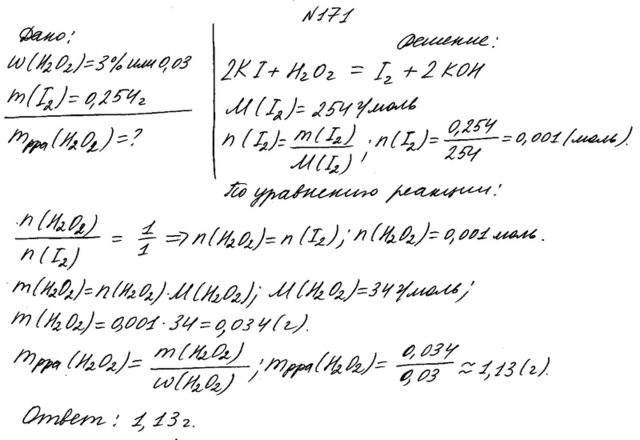 №171
Дано:
w(H₂O₂)=3% или 0,03
m(I₂)=0,254г
mр-ра(H₂O₂)=?
Решение:
2KI+H₂O₂ = I₂+2KOH
M(I₂)=254 г/моль
n(I₂)=m(I₂)/M(I₂); n(I₂)=0,254/254=0,001(моль).
По уравнению реакции:
n(H₂O₂)/n(I₂) = 1/1 ⇒ n(H₂O₂)=n(I₂); n(H₂O₂)=0,001 моль.
m(H₂O₂)=n(H₂O₂)·M(H₂O₂); M(H₂O₂)=34 г/моль;
m(H₂O₂)=0,001·34=0,034(г).
mр-ра(H₂O₂)=m(H₂O₂)/w(H₂O₂); mр-ра(H₂O₂)=0,034/0,03≈1,13(г).
Ответ: 1,13г.